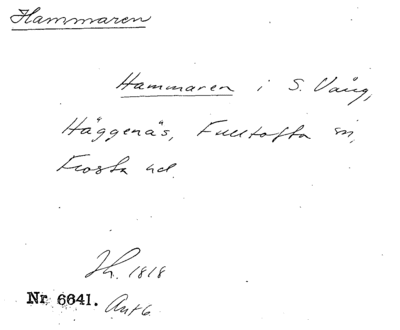 Hammaren
Hammaren i S. Vång,
Häggenäs, Fulltofta sn,
Frosta hd.
Jh. 1818
Nr 6641. Akt 6